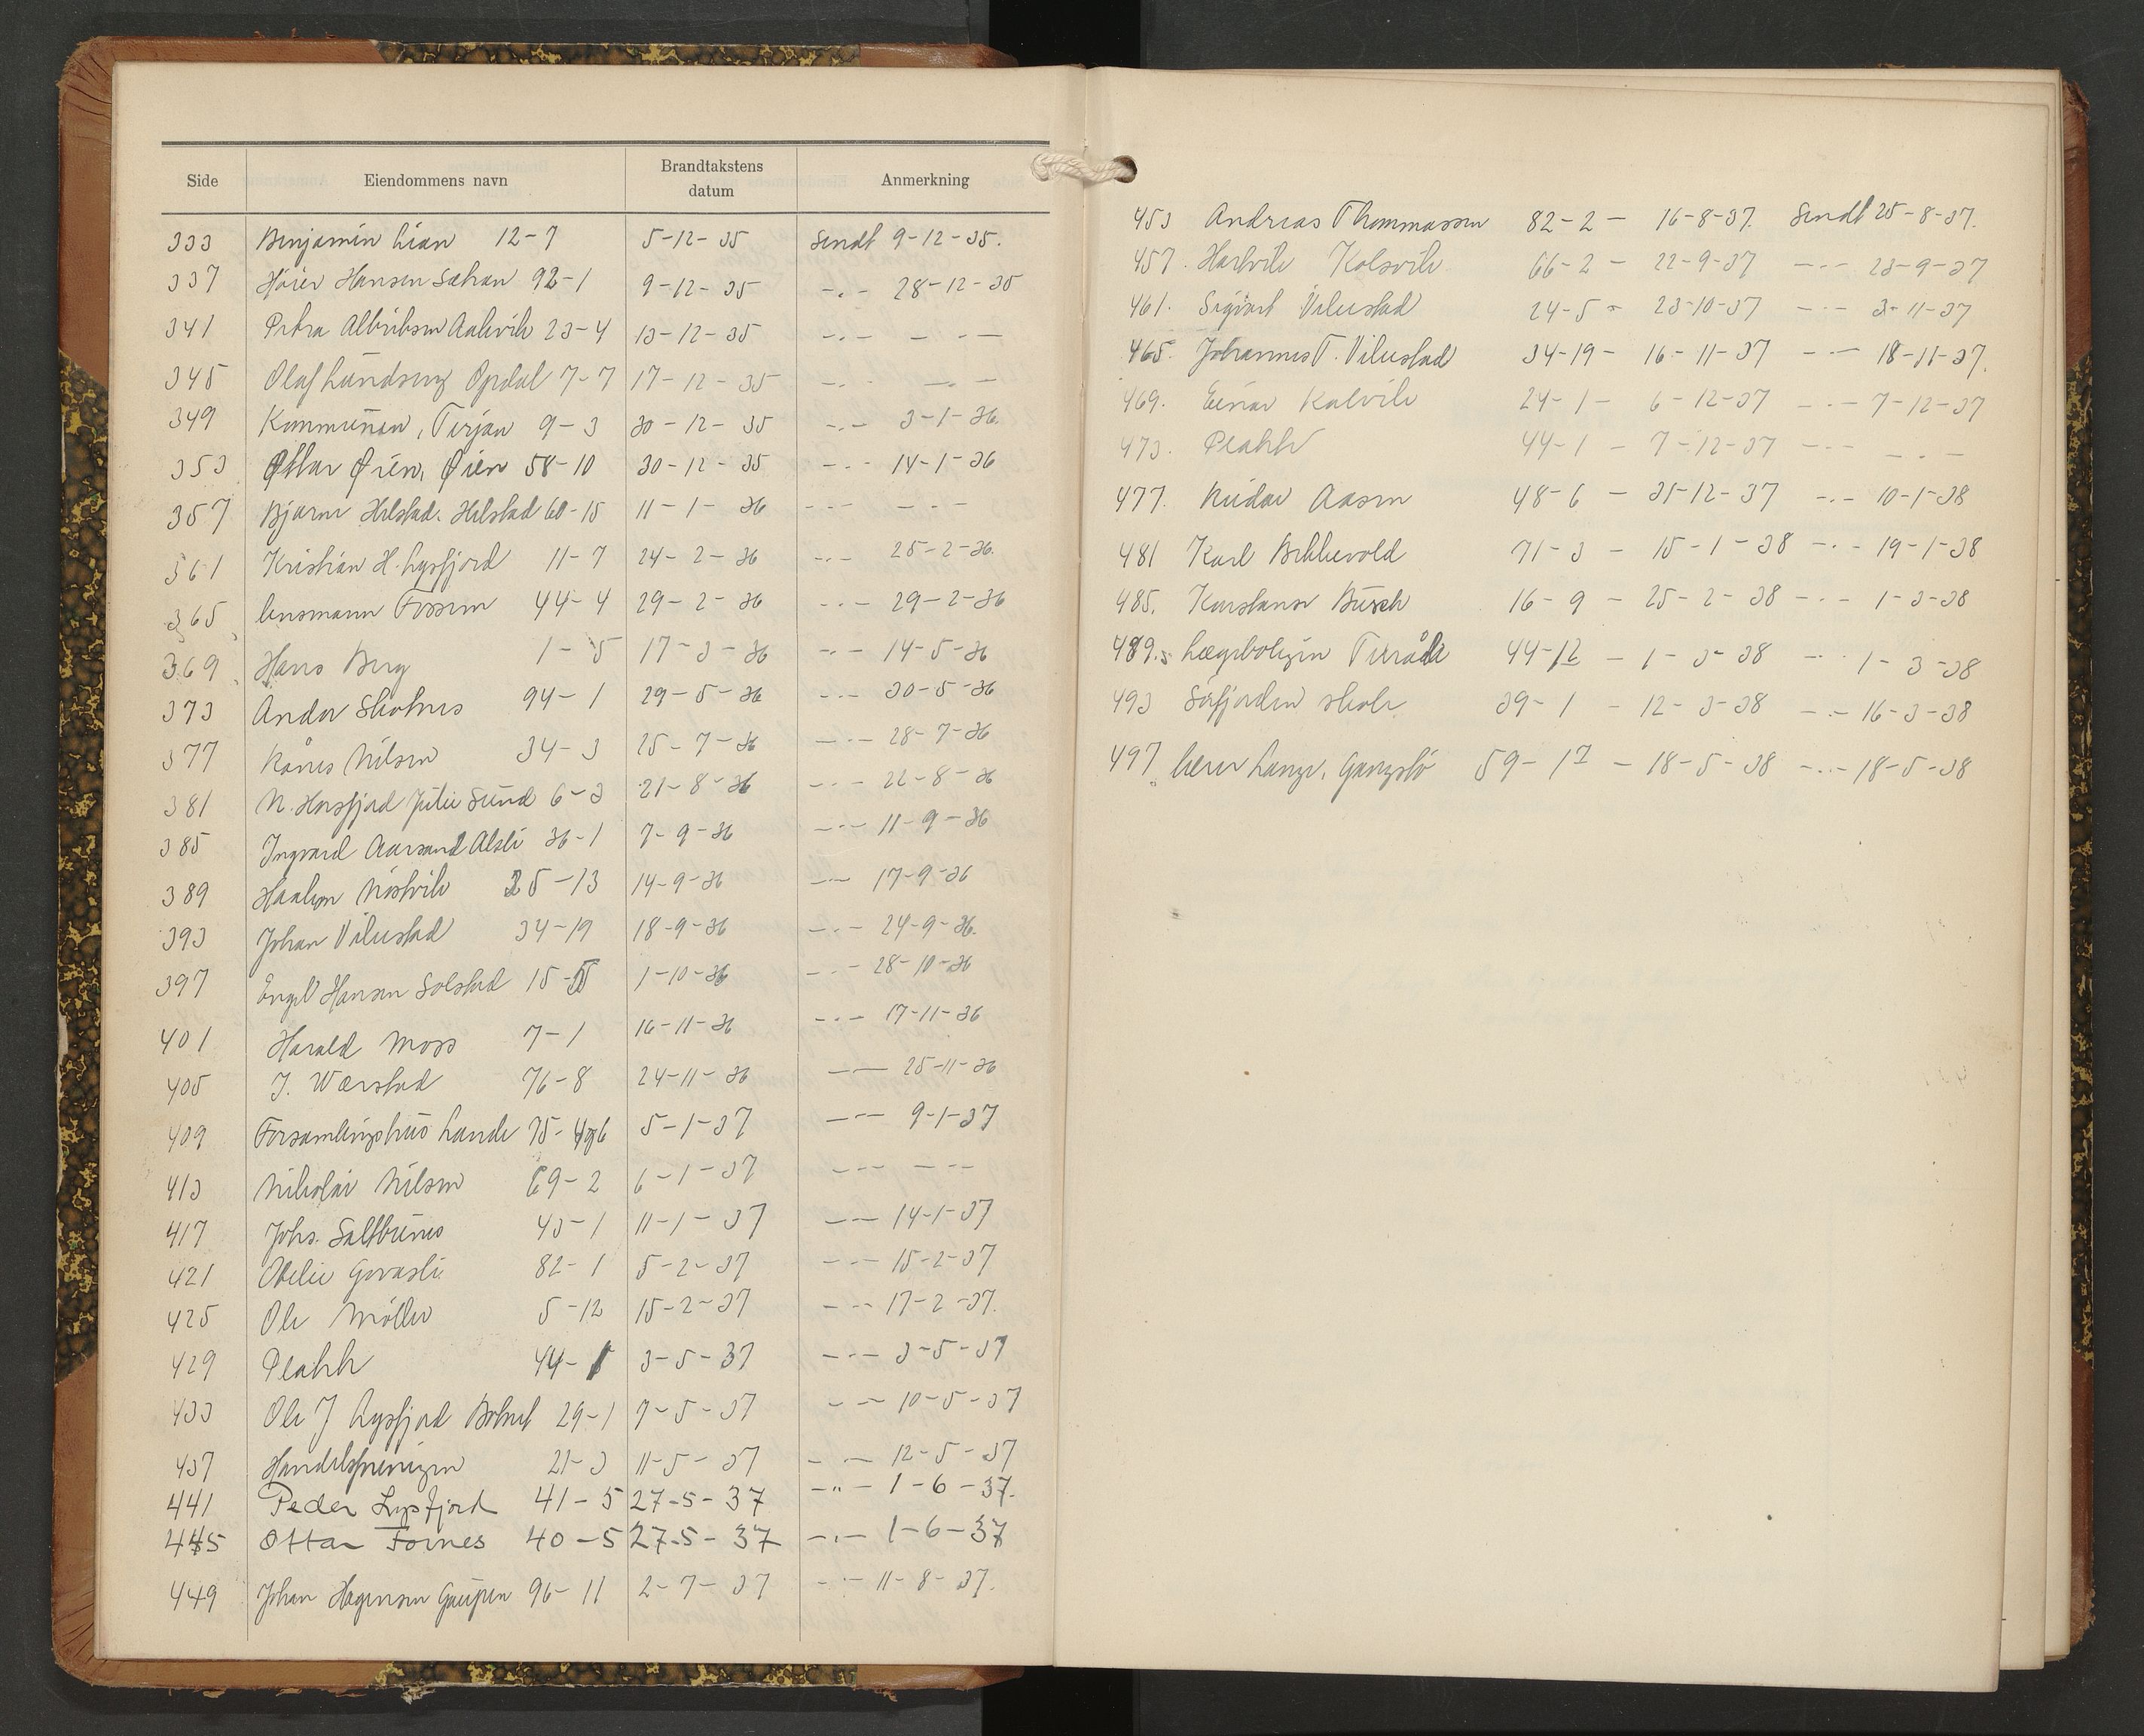 Side Eiendommens navn Brandtakstens datum Anmerkning
333 Benjamin Lian 12-7 5-12-35 Sendt 9-12-35.
337 Høier Hansen Sætran 92-1 9-12-35 -.- 28-12-35
341 Petra Albriktsen Aakvik 23-4 13-12-35 -.- - . -
345 Olaf Lundseng Opdal 7-7 17-12-35 -.- -.-
349 Kommunen, Terjan 9-3 30-12-35 -.- 3-1-36.
353 Ottar Øien, Øien 58-10 30-12-35 -.- 14-1-36
357 Bjarne Hilstad. Hilstad 60-15 11-1-36 -.- -.-
361 Kristian H. Lysfjord 11-7 24-2-36 -.- 25-2-36.
365 lensmann Fossem 44-4 29-2-36 -.- 29-2-36
369 Hans Berg 1-5 17-3-36 -.- 14-5-36
373 Andor Skotnes 94-1 29-5-36 -.- 30-5-36
377 Kåres Nilsen 34-3 25-7-36 -.- 28-7-36
381 N. Horsfjord Julie Sund 6-3 21-8-36 -.- 22-8-36
385 Ingvard Aarsand Alsli 36-1 7-9-36 -.- 11-9-36
389 Haakon Nöstvik 25-13 14-9-36 -.- 17-9-36
393 Johan Vikestad 34-19 18-9-36 -.- 24-9-36.
397 Engel Hansen Solstad 15-5 1-10-36 -.- 28-10-36
401 Harald Moss 7-1 16-11-36 -.- 17-11-36
405 J. Wærstad 76-8 24-11-36 -.- 25-11-36
409 Forsamlingshus Lande 75- 5-1-37 -.- 9-1-37
413 Nikolai Nilsen 69-2 6-1-37 -.- -.-
417 Johs. Saltbunes 43-1 11-1-37 -.- 14-1-37
421 Otelie Govasli 82-1 5-2-37 -.- 15-2-37
425 Ole Möller 5-12 15-2-37 -.- 17-2-37.
429 Plahte 44-1 3-5-37 -.- 3-5-37
433 Ole J Lysfjord Botnet 29-1 7-5-37 -.- 10-5-37
437 Handelsforeningen 21-3 11-5-37 -.- 12-5-37
441 Peder Lysfjord 41-5 27-5-37 -"- 1-6-37.
445 Ottar Fornes 40-5 27-5-37 -.- 1-6-37
449 Johan Hagensen Gaupen 96-11 2-7-37 -.- 11-8-37.
453 Andreas Thommassen 82-2 - 16-8-37. Sendt 25-8-37.
457. Hartvik Kolsvik 66-2 - 22-9-37 -.- 23-9-37
461. Sigvart Vikestad 24-5 - 23-10-37 -.- 3-11-37
465. Johannes T. Vikestad 34-19 - 16-11-37 -.- 18-11-37.
469. Einar Kalvik 24-1 - 6-12-37 -.- 7-12-37
473. Plahte 44-1 - 7-12-37 -.- -.-
477. Reidar Aasen 48-6 - 31-12-37 -.- 10-1-38
481 Karl Bekkevold 71-3 - 15-1-38 -.- 19-1-38
485. Konstanse Busch 16-9 - 25-2-38 -.- 1-3-38
489. Lægeboligen Terråk 44-12 - 1-3-38 -.- 1-3-38
493 Sørfjorden skole 39-1 - 12-3-38 -.- 16-3-38
497. Lange, Gangstö 59-17 - 18-5-38 -.- 18-5-38